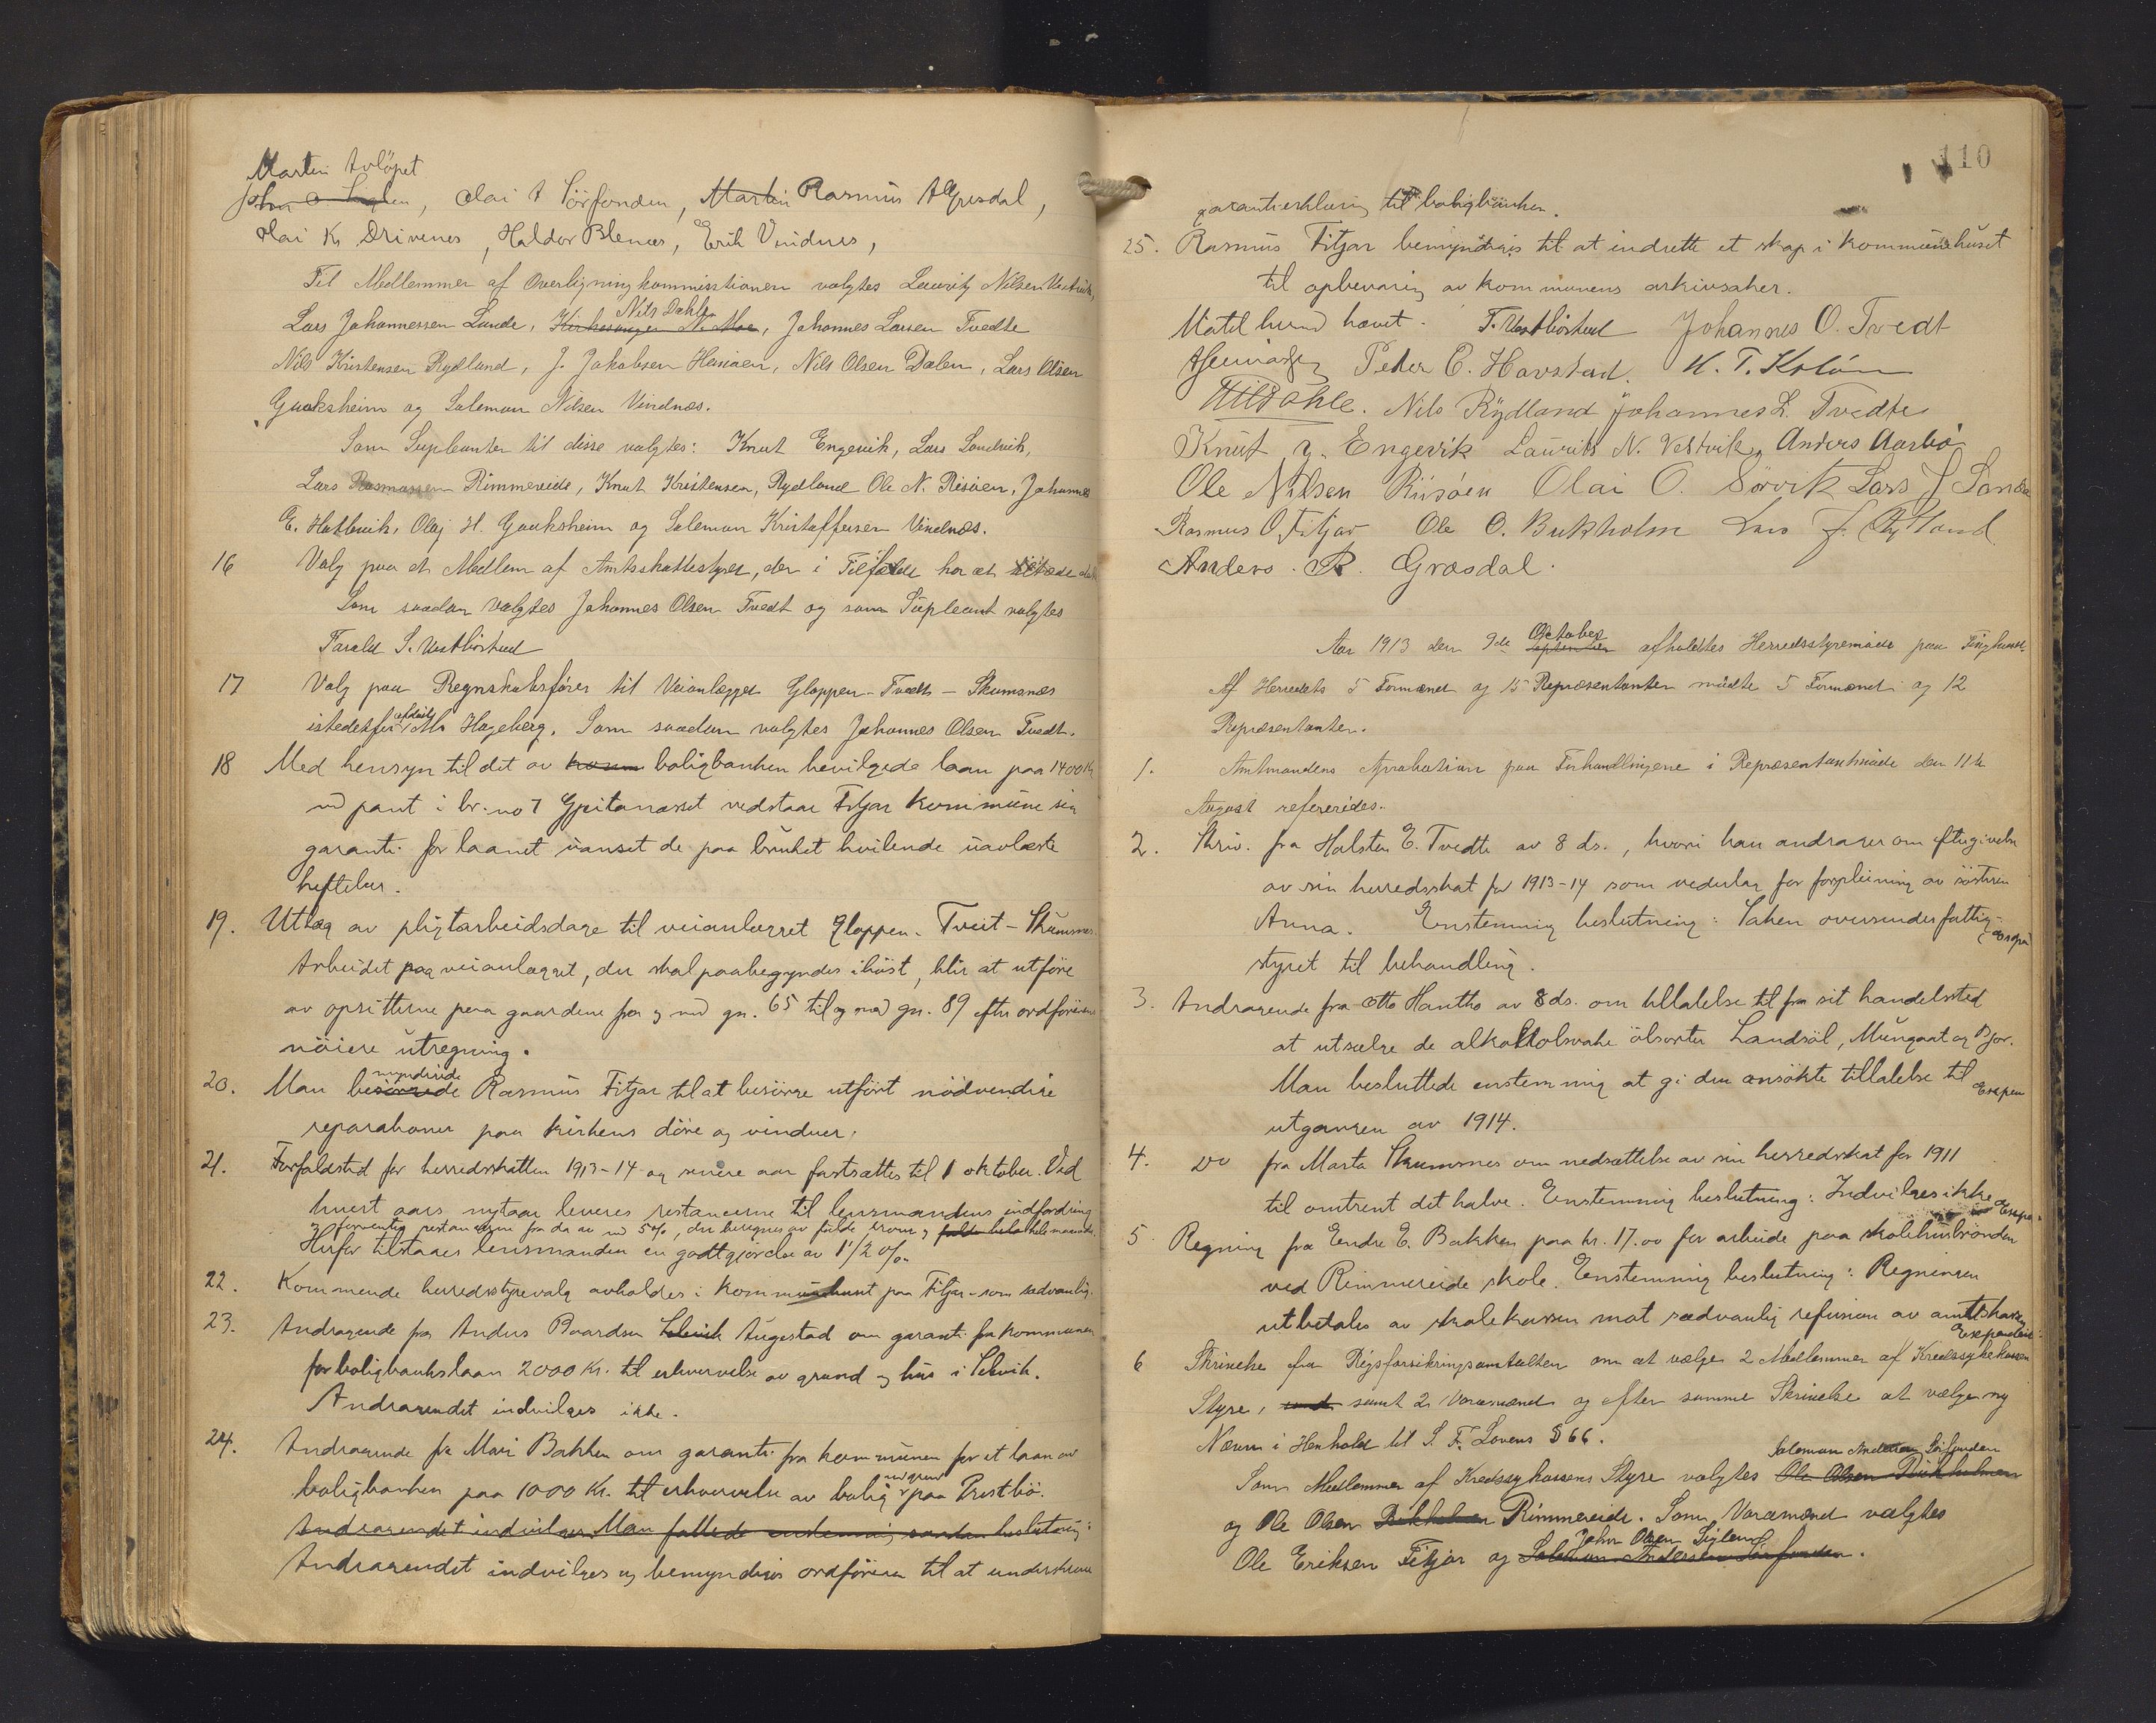 Martin Avlöpet
John O Siglen, Olai A Sörfonden, Martin Rasmus A Græsdal,
Olai K. Drivenes, Haldor Blænes, Erik Vindnes,
Til Medlemmer af Overligningkommisstionen valgtes Lauritz Nilsen Vestvik,
Nils Dahle
Lars Johannessen Sande, Kirkesanger N. Moe, Johannes Larsen Tvedte
Nils Kristensen Rydland, J. Jakobsen Havaaen, Nils Olsen Dalen, Lars Olsen
Gauksheim og Salemon Nilsen Vindnæs.
Som Supleanter til disse valgtes: Knut Engevik, Lars Sandvik,
Lars Rasmussen Rimmereide, Knut Kristensen, Rydland Ole N. Risöen, Johannes
E. Hatlevik, Olaj H. Gauksheim og Salemon Kristoffersen Vindnæs.
16 Valg paa et Medlem af Amtsskattestyret, der i Tilfælde har at tiltræde dette
Som saadan valgtes Johannes Olsen Tvedt og som Supleant valgtes
Tarald S. Vestböstad
17 Valg paa Regnskabsförer til Veianlægget Gloppen - Tvedt - Skumsnæs
afdöde
istedetfor Hageberg. Som saadan valgtes Johannes Olsen Tvedt.
18 Med hensyn til det av kom boligbanken bevilgede laan paa 1400 Kr
md pant i br. no 7 Gpitanæsset vedstaar Fitjar kommune sin
garanti for laanet uanset de paa bruket hvilende uavlöste
heftelser.
19. Utlæg av pligtarbeidsdage til veianlægget Gloppen - Tveit - Skumsnes.
Arbeidet paa veianlægget, der skal paabegyndes ihöst, blir at utföre
av opsitterne paa gaardene fra og md gn. 65 til og md gn. 89 efter ordförerens
nöiere utregning.
myndigede
20. Man besörgede Rasmus Fitjar til at besörge utfört nödvendige
reparationer paa kirkens döre og vinduer.
21. Forfaldstid for herredsskatten 1913-14 og senere aar fastsættes til 1 oktober. Ved
hvert aars nytaar leveres restancerne til lensmandens indfordring
og forrentes restancerne fra da av md 5%, der beregnes av fulde kroner og hele maaneder.
Herfor tilstaaes lensmanden en godtgjörelse av 1 1/2 %.
22. Kommende herredsstyrevalg avholdes i kommunehuset paa Fitjar som sædvanlig.
23. Andragende fra Anders Baardsen Selevik Augestad om garanti fra kommunen
for boligbankslaan 2000 Kr. til erhvervelse av grund og hus i Selevik.
Andragendet indvilges ikke.
24. Andragende fra Mari Bakken om garanti fra kommunen for et laan av
md grund
boligbanken paa 1000 Kr. til erhvervelse av bolig paa Prestbö.
Andragendet indvilges Man fattede enstemmig saadan beslutning:
Andragendet indvilges og bemyndiges ordföreren til at underskrive
110
garantierklæring til boligbanken.
25. Rasmus Fitjar bemyndiges til at indrette et skap i kommunehuset
til opbevaring av kommunens arkivsaker.
Mötet herved hævet. T. Vestböstad Johannes O. Tvedt
Peder C. Havstad. K. T. Koløen
Nils Dahle. Nils Rydland Johannes L. Tvedte
Knut J. Engevik Laurits N. Vestvik Anders Aarbö
Ole Nilsen Risöen Olai O. Sörvik Lars J Sande
Rasmus O. Fitjar Ole O. Bukholm Lars J. Rydland
Anders R. Græsdal.
October
Aar 1913 den 9de September afholdtes Herredsstyremöde paa Tinghuset.
Af Herredets 5 Formænd og 15 Repræsentanter mödte 5 Formænd og 12
Repræsentanter.
1. Amtmandens Aprobation paa Forhandlingene i Repræsentantmöde den 11te
August refereredes.
2. Skriv. fra Halsten E. Tvedte av 8 ds., hvori han andrager om eftergivelse
av sin herredsskat for 1913-14 som vederlag for forpleining av sösteren
Anna. Enstemmig beslutning: Saken oversendes fattig-
styret til behandling.
3. Andragende fra Otto Hantho av 8 ds. om tillatelse til fra sit handelssted
at utsælge de alkoholsvake ölsorter Landsöl, Mungaat og Bjor.
Man besluttede enstemmig at gi den ansökte tillatelse til
Exspen
utgangen av 1914.
4. Do fra Marta Skumsnes om nedsættelse av sin herredsskat for 1911
til omtrent det halve. Enstemmig beslutning: Indvilges ikke
Exspe.
5. Regning fra Endre E. Bakken paa kr. 17.00 for arbeide paa skolehusbrönden
ved Rimmereide skole. Enstemmig beslutning: Regningen
utbetales av skolekassen mot sædvanlig refusion av amtskassen
6 Skrivelse fra Rigsforsikringsanstalten om at vælge 2 Medlemmer af Kredssykekassen
Styre, samt 2 Varamænd og efter samme Skrivelse at vælge ny
Nævn i Henhold til S. F. Lovens § 66.
Salomon Andersen Sörfonden
Som Medlemmer af Kredssykassens Styre valgtes Ole Olsen Bukholmen
og Ole Olsen Bukholmen Rimmereide. Som Varamænd valgtes
John Olsen Siglen
Ole Eriksen Fitjar og Salomon Andersen Sörfonden.